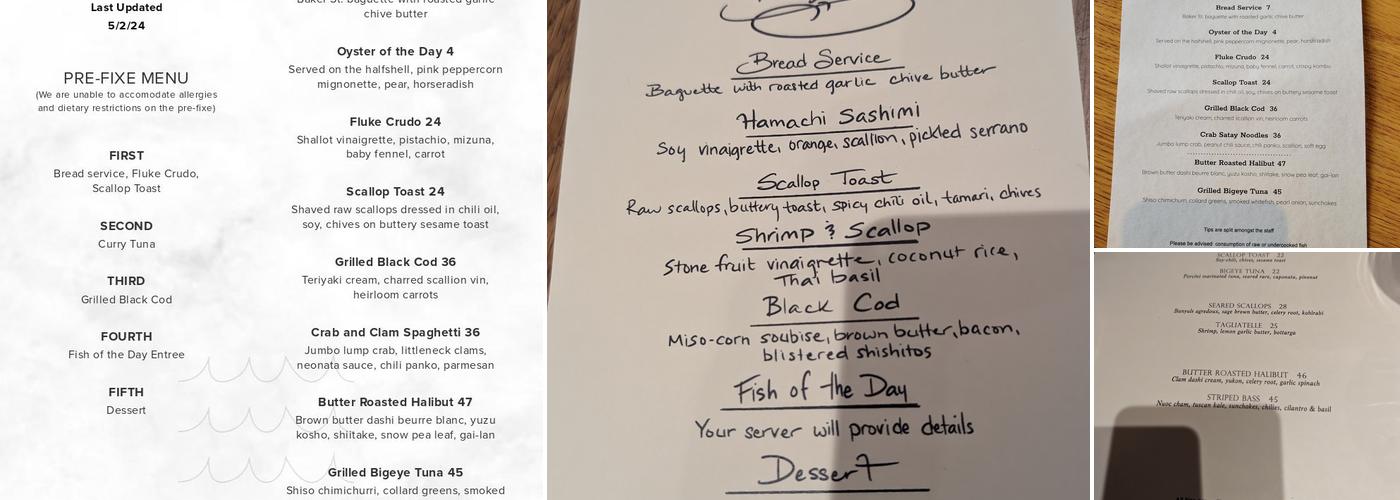 Last Updated
5/2/24
PRE-FIXE MENU
(We are unable to accomodate allergies
and dietary restrictions on the pre-fixe)
FIRST
Bread service, Fluke Crudo,
Scallop Toast
SECOND
Curry Tuna
THIRD
Grilled Black Cod
FOURTH
Fish of the Day Entree
FIFTH
Dessert
Baker St. baguette with roasted garlic
chive butter
Oyster of the Day 4
Served on the halfshell, pink peppercorn
mignonette, pear, horseradish
Fluke Crudo 24
Shallot vinaigrette, pistachio, mizuna,
baby fennel, carrot
Scallop Toast 24
Shaved raw scallops dressed in chili oil,
soy, chives on buttery sesame toast
Grilled Black Cod 36
Teriyaki cream, charred scallion vin,
heirloom carrots
Crab and Clam Spaghetti 36
Jumbo lump crab, littleneck clams,
neonata sauce, chili panko, parmesan
Butter Roasted Halibut 47
Brown butter dashi beurre blanc, yuzu
kosho, shiitake, snow pea leaf, gai-lan
Grilled Bigeye Tuna 45
Shiso chimichurri, collard greens, smoked
Bread Service
Baguette with roasted garlic chive butter
Hamachi Sashimi
Soy vinaigrette, orange, scallion, pickled serrano
Scallop Toast
Raw scallops, buttery toast, spicy chili oil, tamari, chives
Shrimp & Scallop
Stone fruit vinaigrette, coconut rice,
Thai basil
Black Cod
Miso-corn soubise, brown butter, bacon,
blistered shishitos
Fish of the Day
Your server will provide details
Dessert
Bread Service 7
Baker St. baguette with roasted garlic, chive butter
Oyster of the Day 4
Served on the halfshell, pink peppercorn mignonette, pear, horshradish
Fluke Crudo 24
Shallot vinaigrette, pistachio, mizuna, baby fennel, carrot, crispy kombu
Scallop Toast 24
Shaved raw scallops dressed in chili oil, soy, chives on buttery sesame toast
Grilled Black Cod 36
Teriyaki cream, charred scallion vin, heirloom carrots
Crab Satay Noodles 36
Jumbo lump crab, peanut chili sauce, chili panko, scallion, soft egg
Butter Roasted Halibut 47
Brown butter dashi beurre blanc, yuzu kosho, shiitake, snow pea leaf, gai-lan
Grilled Bigeye Tuna 45
Shiso chimichurri, collard greens, smoked whitefish, pearl onion, sunchokes
Tips are split amongst the staff
Please be advised: consumption of raw or undercooked fish
SCALLOP TOAST 22
Soy-chili, chives, sesame toast
BIGEYE TUNA 22
Porcini marinated tuna, seared rare, caponata, pinenut
SEARED SCALLOPS 28
Banyuls agrodoux, sage brown butter, celery root, kohlrabi
TAGLIATELLE 25
Shrimp, lemon garlic butter, bottarga
BUTTER ROASTED HALIBUT 46
Clam dashi cream, yukon, celery root, garlic spinach
STRIPED BASS 45
Nuoc cham, tuscan kale, sunchokes, chilies, cilantro & basil